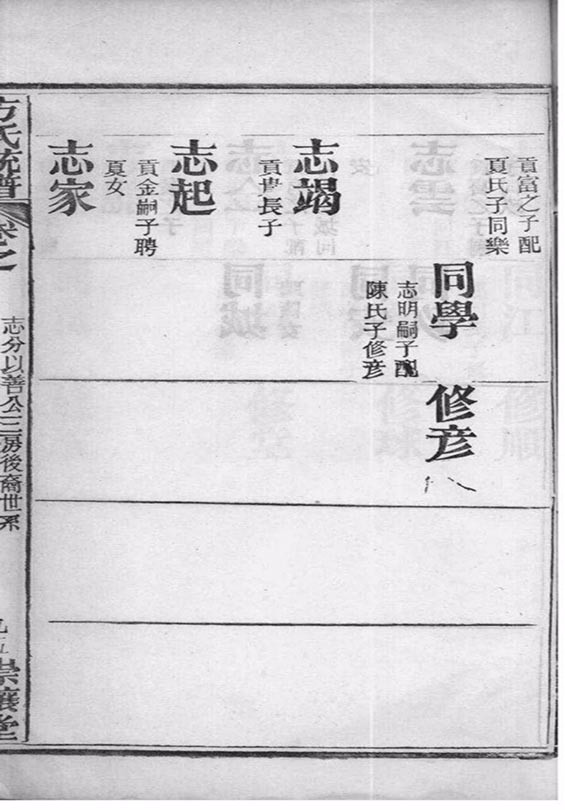 貢富之子配
夏氏子同樂
同學
志明嗣子配
陳氏子修彦
修彦
志竭
貢世長子
志起
貢金嗣子聘
夏女
志家
方氏統譜
卷之
志分以善公二房後裔世系
崇讓堂